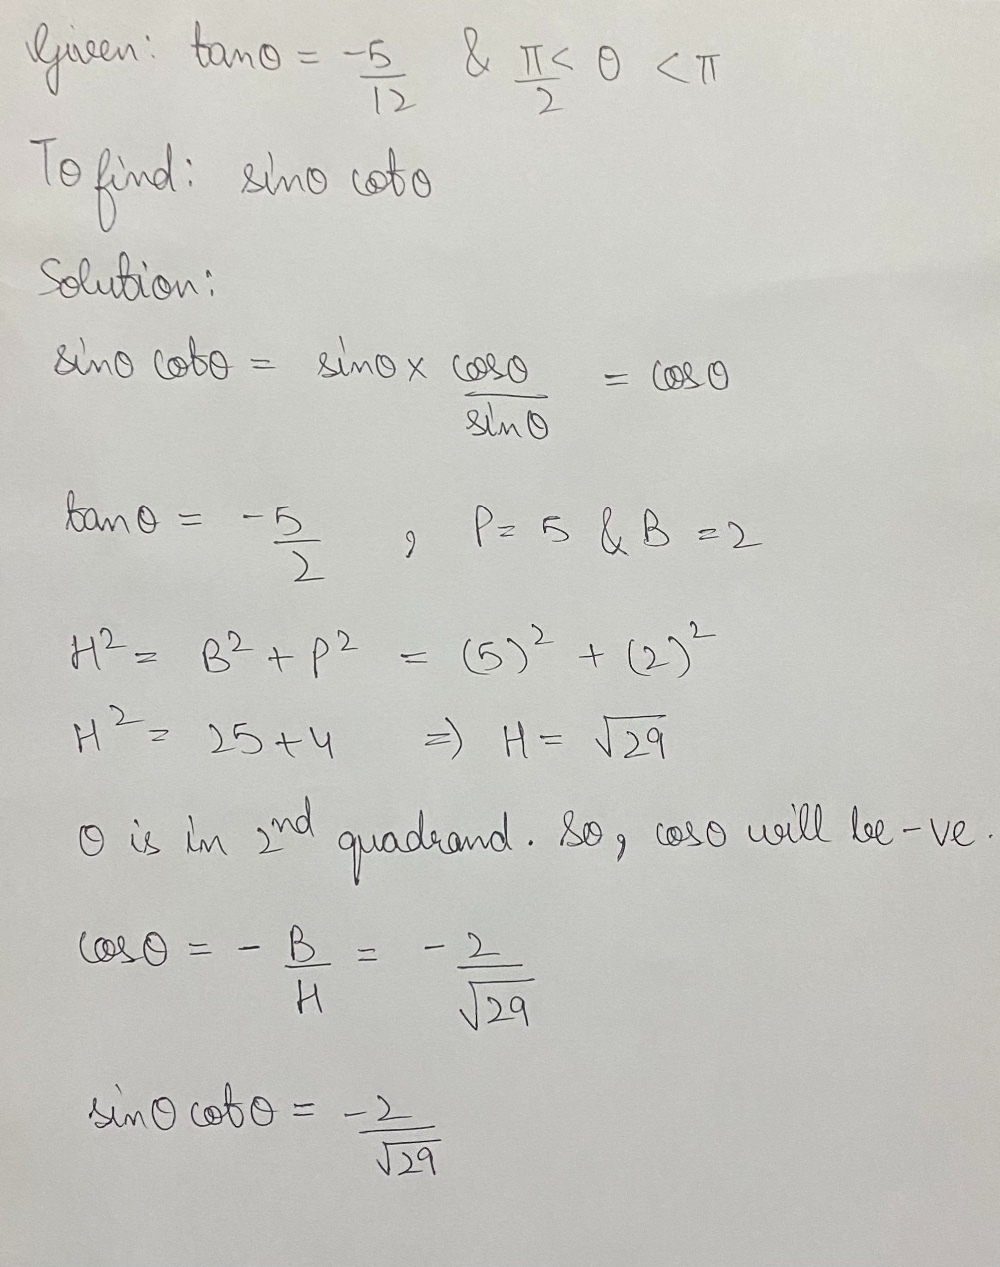 Given: tanθ = -5/12 & π/2 < θ < π
To find: sinθ cotθ
Solution:
sinθ cotθ = sinθ × cosθ/sinθ = cosθ
tanθ = -5/2 , P = 5 & B = 2
H² = B² + P² = (5)² + (2)²
H² = 25+4 => H = √29
θ is in 2nd quadrand. So, cosθ will be -ve.
cosθ = - B/H = - 2/√29
sinθ cotθ = -2/√29